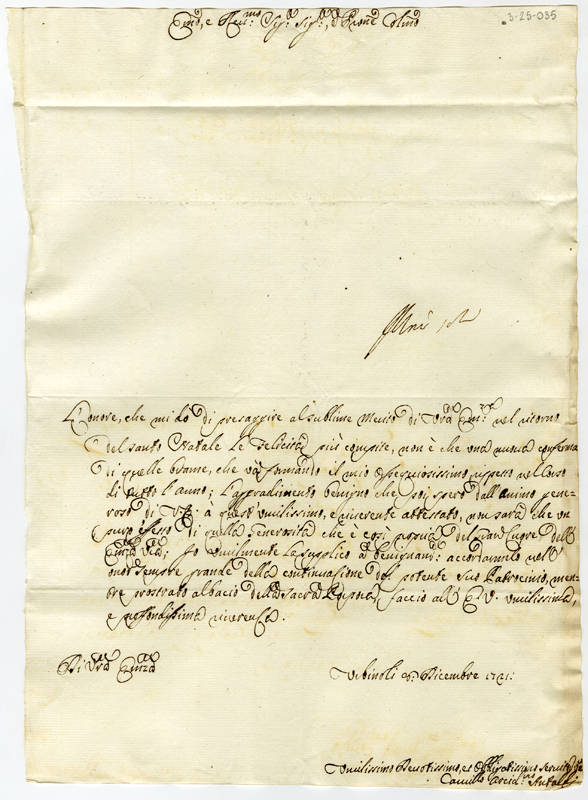 3-25-035
Emo, e Revmo Sigr Sigr, e Prone Colmo
L'onore, che mi dò di presaggire al sublime Merito di Vra Emza nel ritorno
del santo Natale le Felicità più compite, non è che una nuova conferma
di quelle brame, che và formando il mio ossequiosissimo rispetto nel corso
di tutto l'anno; L'aggradimento benigno che poi spero dall'animo gene-
roso di V. E. à quest'umilissimo, e riverente attestato, non sarà che un
puro effetto di quella Generosità che è così propria del gran Cuore dell'
Emza Vra; Io umilmente la supplico à benignarsi accordarmelo coll'
onor sempre grande della continuazione del potente suo Patrocinio, men-
tre prostrato al bacio della Sacra Porpora, faccio all' E. V. umilissima,
e profondissima riverenza.
Di Vra Emza
Dicembre 1721:
Umilissimo Devotissimo, et Obligatissimo Servitore
Camillo Arcid.